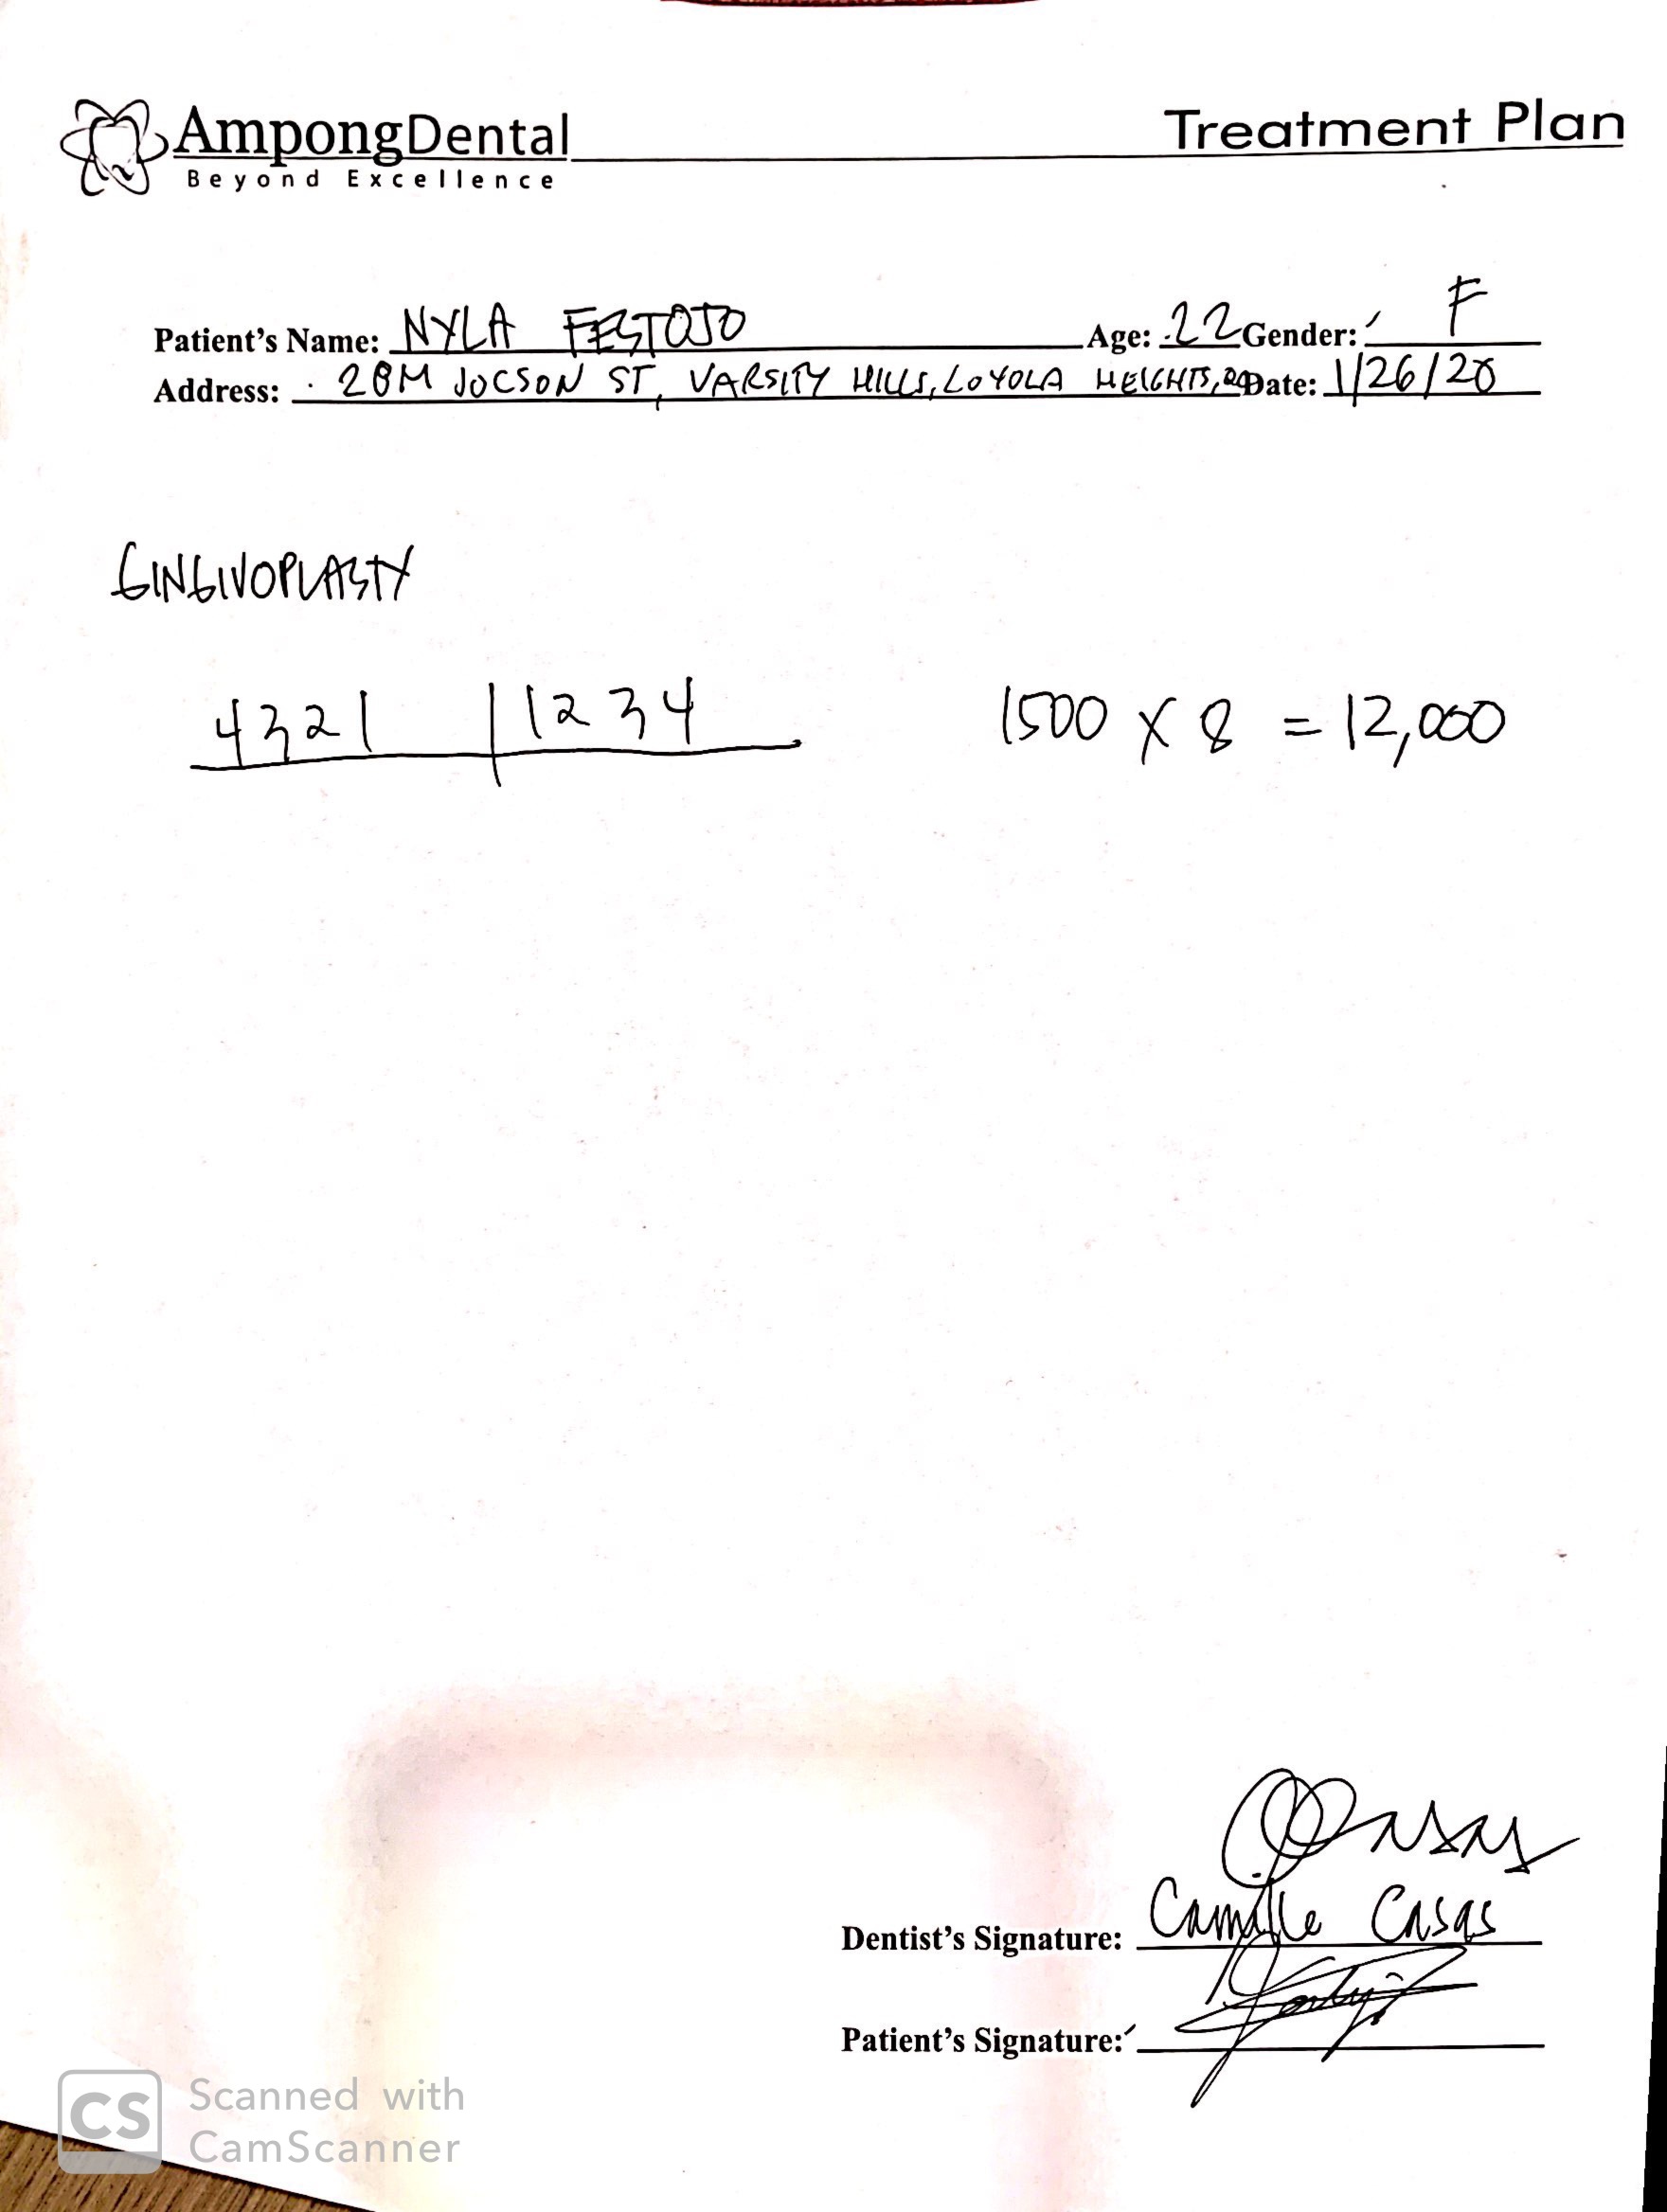 AmpongDental Treatment Plan
Beyond Excellence
Patient's Name: NYLA FESTOJO Age: 22 Gender: F
Address: 28M JOCSON ST, VARSITY HILLS, LOYOLA HEIGHTS, Date: 1/26/20
GINGIVOPLASTY
4321 | 1234 1500 X 8 = 12,000
Dentist's Signature: Camille Casas
Patient's Signature:
CS Scanned with
CamScanner